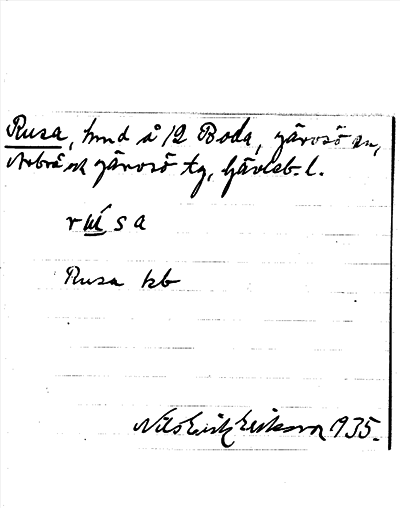 Rusa, hmd å 12 Boda, Järvsö sn,
Arbrå ok Järvsö tg, Gävleb. l.
rúsa
Rusa kb
Nils Erik Eriksson 1935.